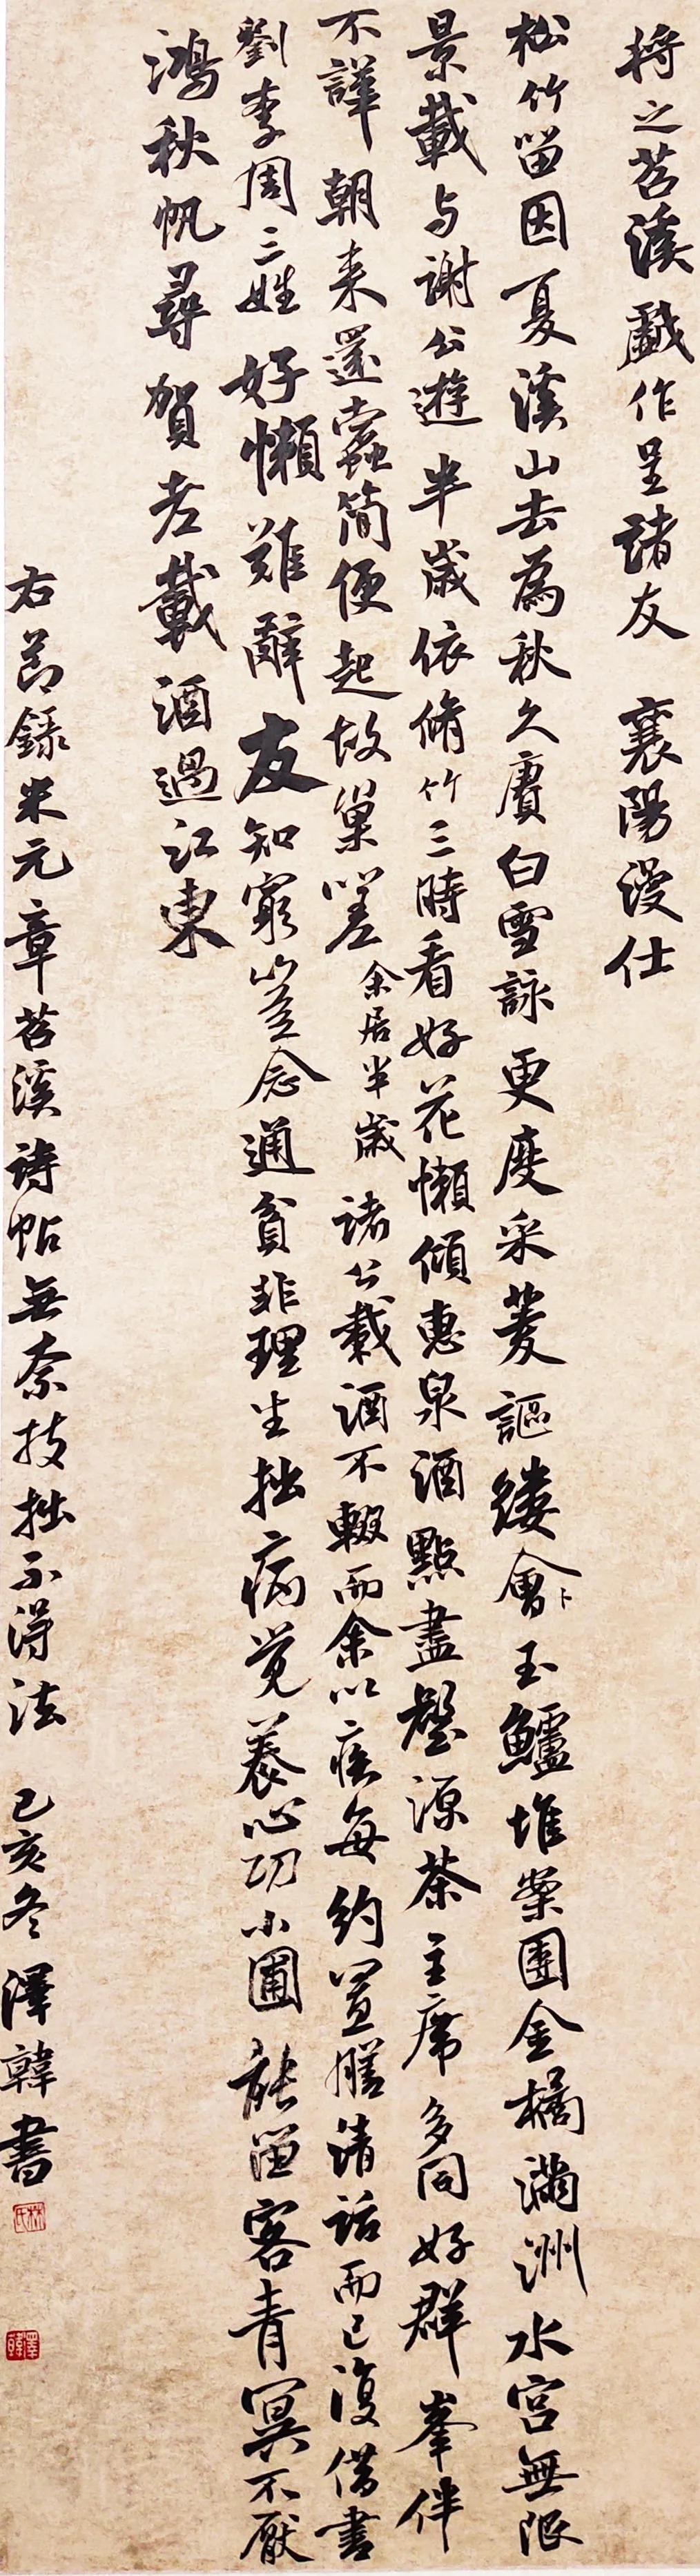 將之苕溪戲作呈諸友　襄陽漫仕
松竹留因夏溪山去為秋久賡白雪詠更度采菱謳縷會卜玉鱸堆案團金橘滿洲水宮無限
景載与謝公遊半歲依脩竹三時看好花懶傾惠泉酒點盡壑源茶主席多同好群峯伴
不譁朝来還蠹簡便起故巢嗟余居半歲諸公載酒不輟而余以疾每約置膳清話而已復借書
劉李周三姓好懶難辭友知窮豈念通貧非理生拙病覺養心功小圃能留客青冥不厭
鴻秋帆尋賀老載酒過江東
右節錄米元章苕溪詩帖無奈技拙不得法　己亥冬澤韓書
林氏
澤韓